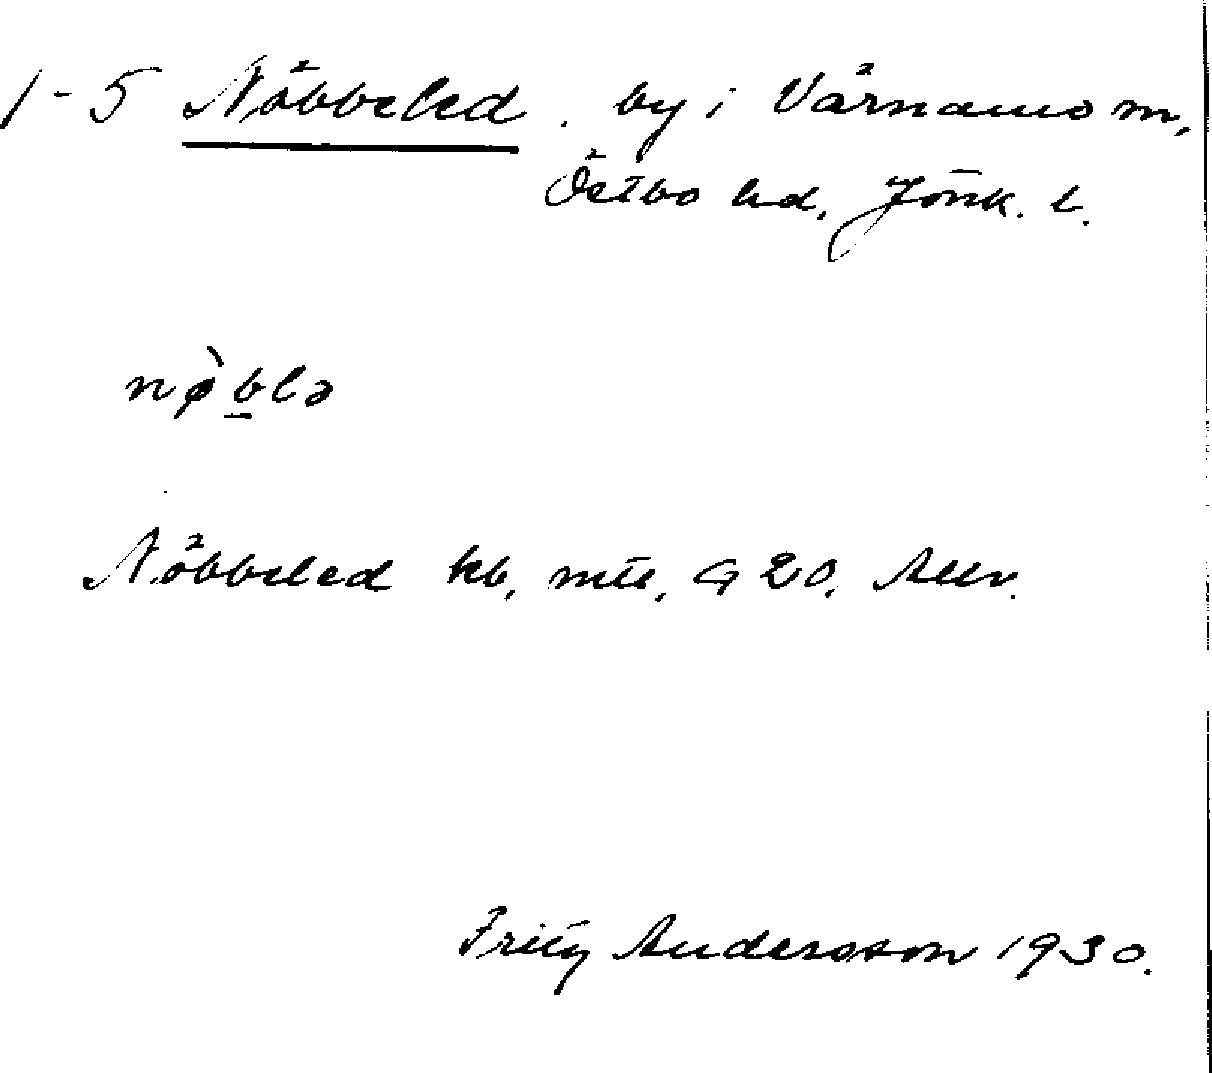 1-5 Nöbbeled. by i Värnamo m,
Östbo hd, Jönk. l.
nø̀b̲lə
Nöbbeled kb,
Fritz Andersson 1930.